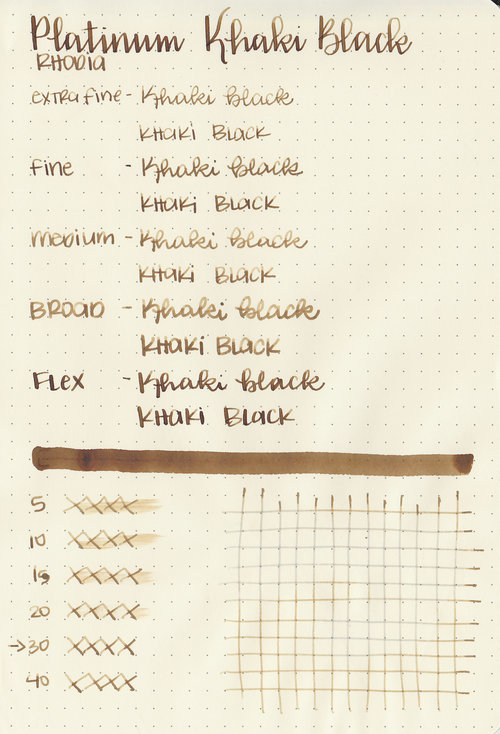 Platinum Khaki Black
RHODIA
extra fine - Khaki black
KHAKI BLACK
Fine - Khaki black
KHAKI BLACK
Medium - Khaki black
KHAKI BLACK
BROAD - Khaki black
KHAKI BLACK
Flex - Khaki black
KHAKI BLACK
5 XXXX
10 XXXX
15 XXXX
20 XXXX
→30 XXXX
40 XXXX